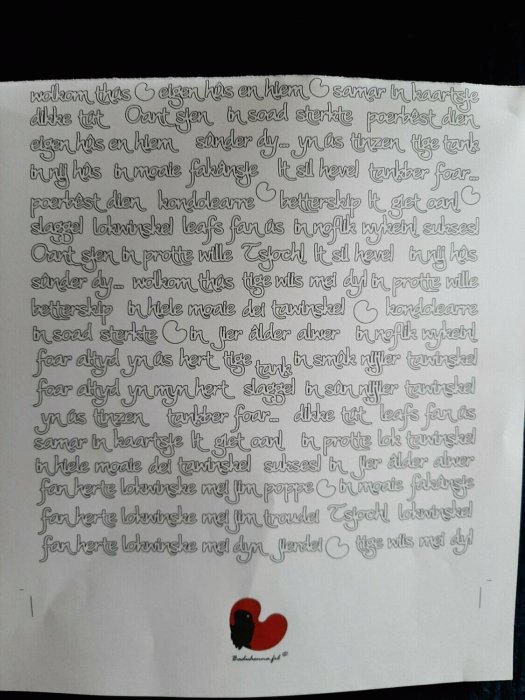 wolkom thús eigen hûs en hiem samar in kaartsje
dikke tút Oant sjen in soad sterkte poerbêst dien
eigen hûs en hiem sûnder dy... yn ús tinzen tige tank
in nij hûs in moaie fakânsje It sil heve! tankber foar...
poerbêst dien kondolearre betterskip It giet oan!
slagge! lokwinske! leafs fan ús in noflik wykein! sukses!
Oant sjen in protte wille Tsjoch! It sil heve! in nij hûs
sûnder dy... wolkom thús tige wiis mei dy! in protte wille
betterskip in hiele moaie dei tawinske! kondolearre
in soad sterkte in jier âlder alwer in noflik wykein!
foar altyd yn ús hert tige tank in smûk nijjier tawinske!
foar altyd yn myn hert slagge! in sûn nijjier tawinske!
yn ús tinzen tankber foar... dikke tút leafs fan ús
samar in kaartsje It giet oan! in protte lok tawinske!
in hiele moaie dei tawinske! sukses! in jier âlder alwer
fan herte lokwinske mei jim poppe in moaie fakânsje
fan herte lokwinske mei jim troudei Tsjoch! lokwinske!
fan herte lokwinske mei dyn jierdei tige wiis mei dy!